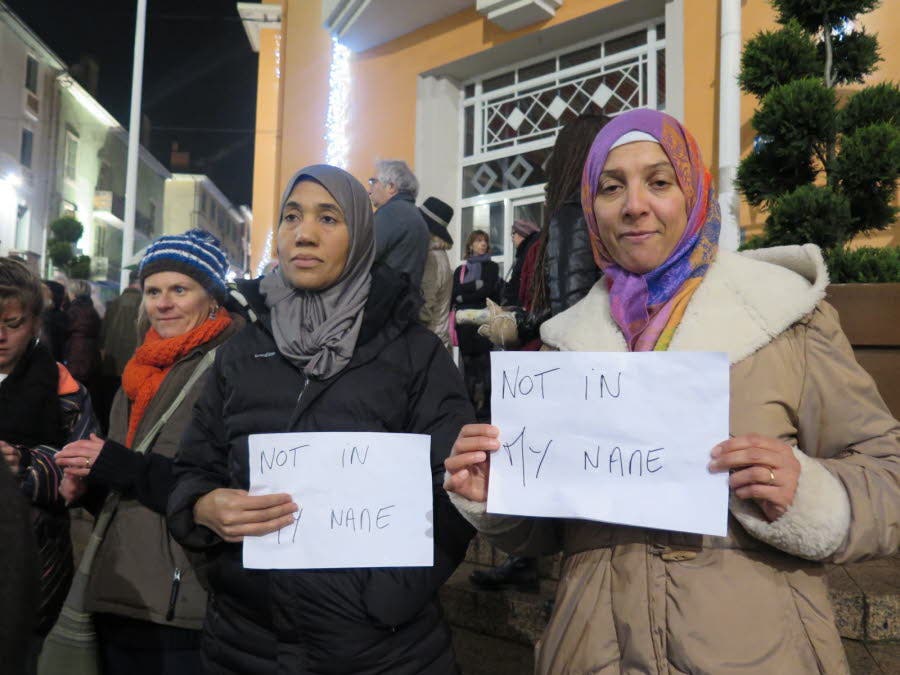 NOT IN
MY NAME
NOT IN
MY NAME